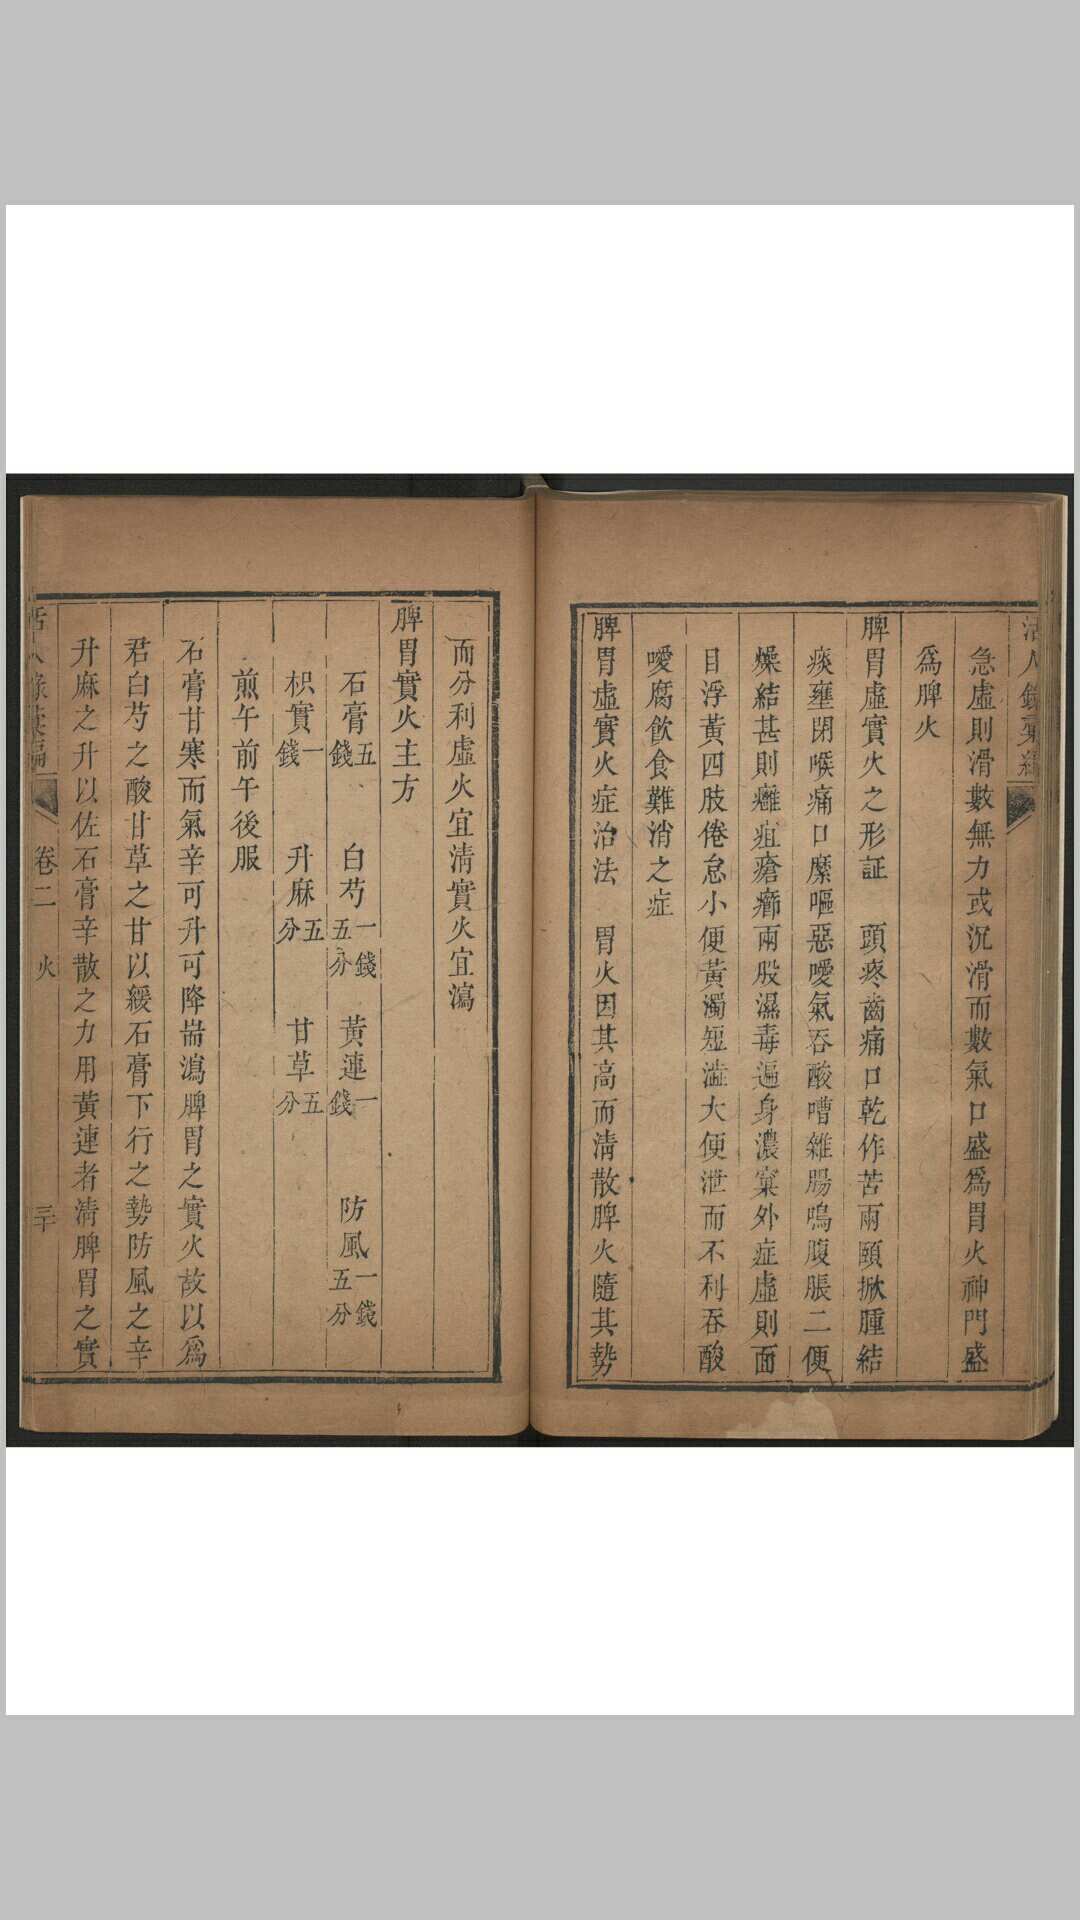 活人錄彙編
急虛則滑數無力或沉滑而數氣口盛爲胃火神門盛
爲脾火
脾胃虛實火之形証　頭疼齒痛口乾作苦兩頤掀腫結
痰壅閉喉痛口糜嘔惡噯氣吞酸嘈雜腸鳴腹脹二便
燥結甚則癰疽瘡癤兩股濕毒遍身濃窠外症虛則面
目浮黃四肢倦怠小便黃濁短澁大便泄而不利吞酸
噯腐飲食難消之症
脾胃虛實火症治法　胃火因其高而淸散脾火隨其勢
而分利虛火宜淸實火宜瀉
脾胃實火主方
石膏五錢　白芍一錢五分　黃連一錢　防風一錢五分
枳實一錢　升麻五分　甘草五分
煎午前午後服
石膏甘寒而氣辛可升可降耑瀉脾胃之實火故以爲
君白芍之酸甘草之甘以緩石膏下行之勢防風之辛
升麻之升以佐石膏辛散之力用黃連者淸脾胃之實
活人錄彙編　卷二　火　三十